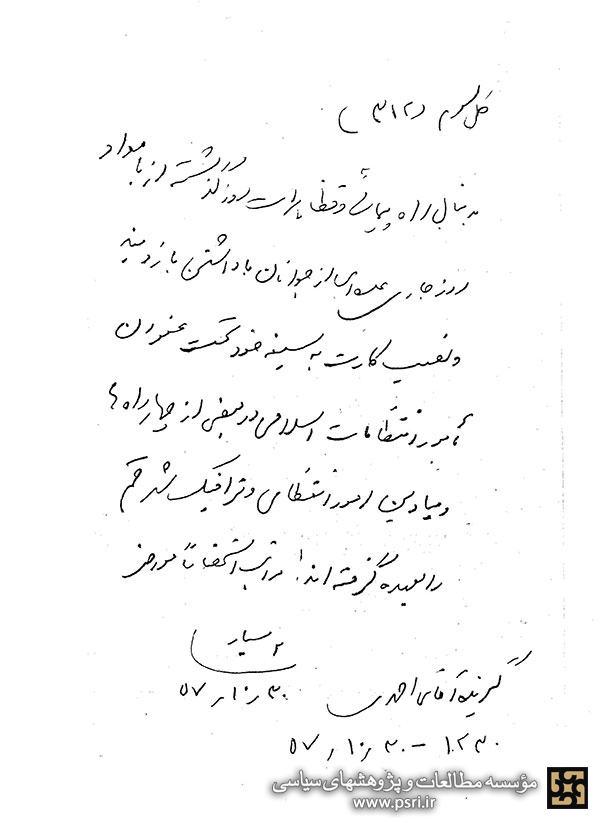 کل سوم (۳۱۲)
بدنبال راه پیمائی و تظاهرات روز گذشته از بامداد
روز جاری عده‌ای از جوانان با داشتن بازوبند
و نصب کارت به سینه خود تحت عنوان
مأمور انتظامات اسلامی در بعضی از چهارراه‌ها
و میادین امور انتظامی و ترافیک شهر قم
را بعهده گرفته‌اند. مراتب استحضاراً معروض
۲ سیار
۵۷٫۱۰٫۳۰
گیرنده آقای احمدی
۵۷٫۱۰٫۳۰ –
مؤسسه مطالعات و پژوهشهای سیاسی
www.psri.ir